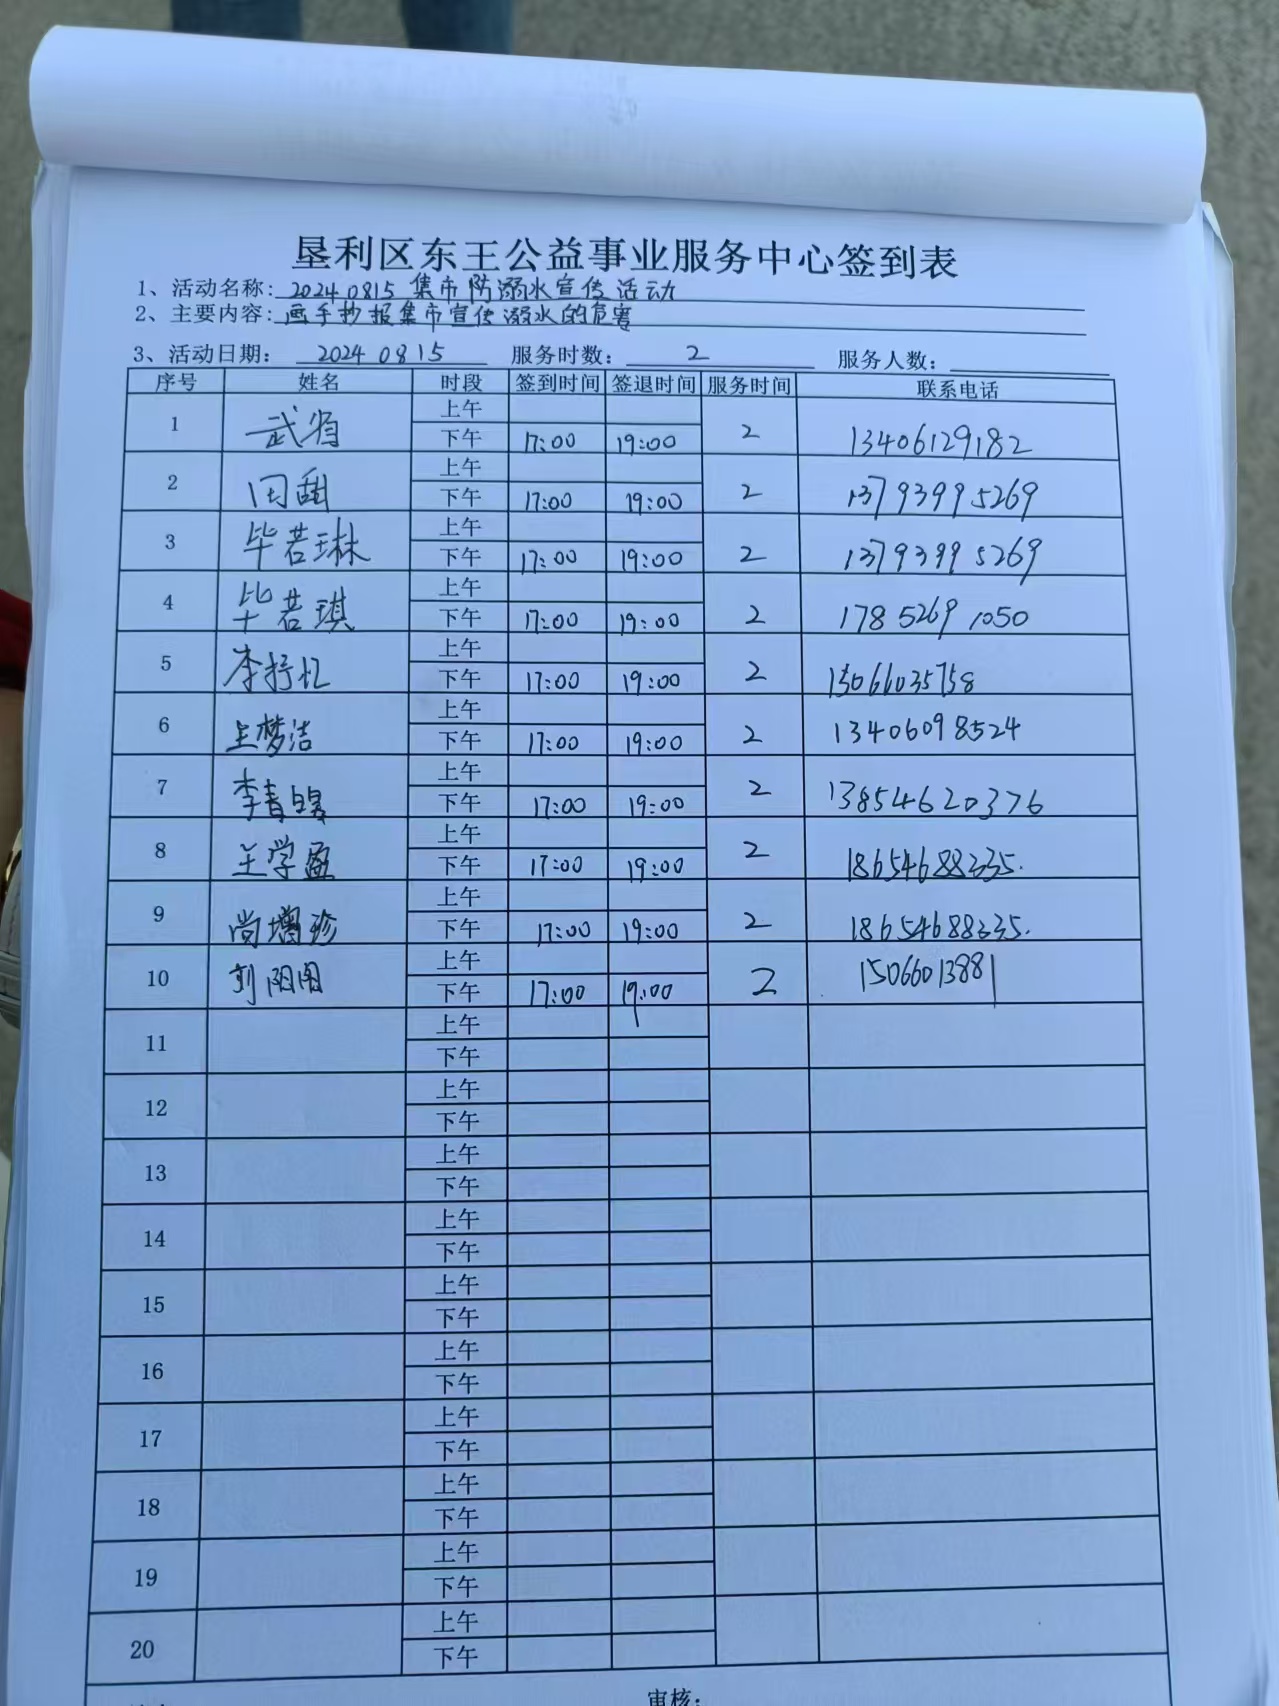 垦利区东王公益事业服务中心签到表
1、活动名称: 20240815 集市防溺水宣传活动
2、主要内容: 画手抄报集市宣传溺水的危害
3、活动日期: 20240815 服务时数: 2 服务人数:
序号 姓名 时段 签到时间 签退时间 服务时间 联系电话
上午
1 武省 2 13406129182
下午 17:00 19:00
上午
2 田甜 2 13793995269
下午 17:00 19:00
上午
3 毕若琳 2 13793995269
下午 17:00 19:00
上午
4 毕若琪 2 178 5269 1050
下午 17:00 19:00
上午
5 李抒忆 2 15066035758
下午 17:00 19:00
上午
6 王梦洁 2 13406098524
下午 17:00 19:00
上午
7 李青 2 13854620376
下午 17:00 19:00
上午
8 王学盈 2 18654688335.
下午 17:00 19:00
上午
9 尚增珍 2 18654688335.
下午 17:00 19:00
上午
10 2 15066013881
下午 17:00 19:00
上午
11
下午
上午
12
下午
上午
13
下午
上午
14
下午
上午
15
下午
上午
16
下午
上午
17
下午
上午
18
下午
上午
19
下午
上午
20
下午
审核: